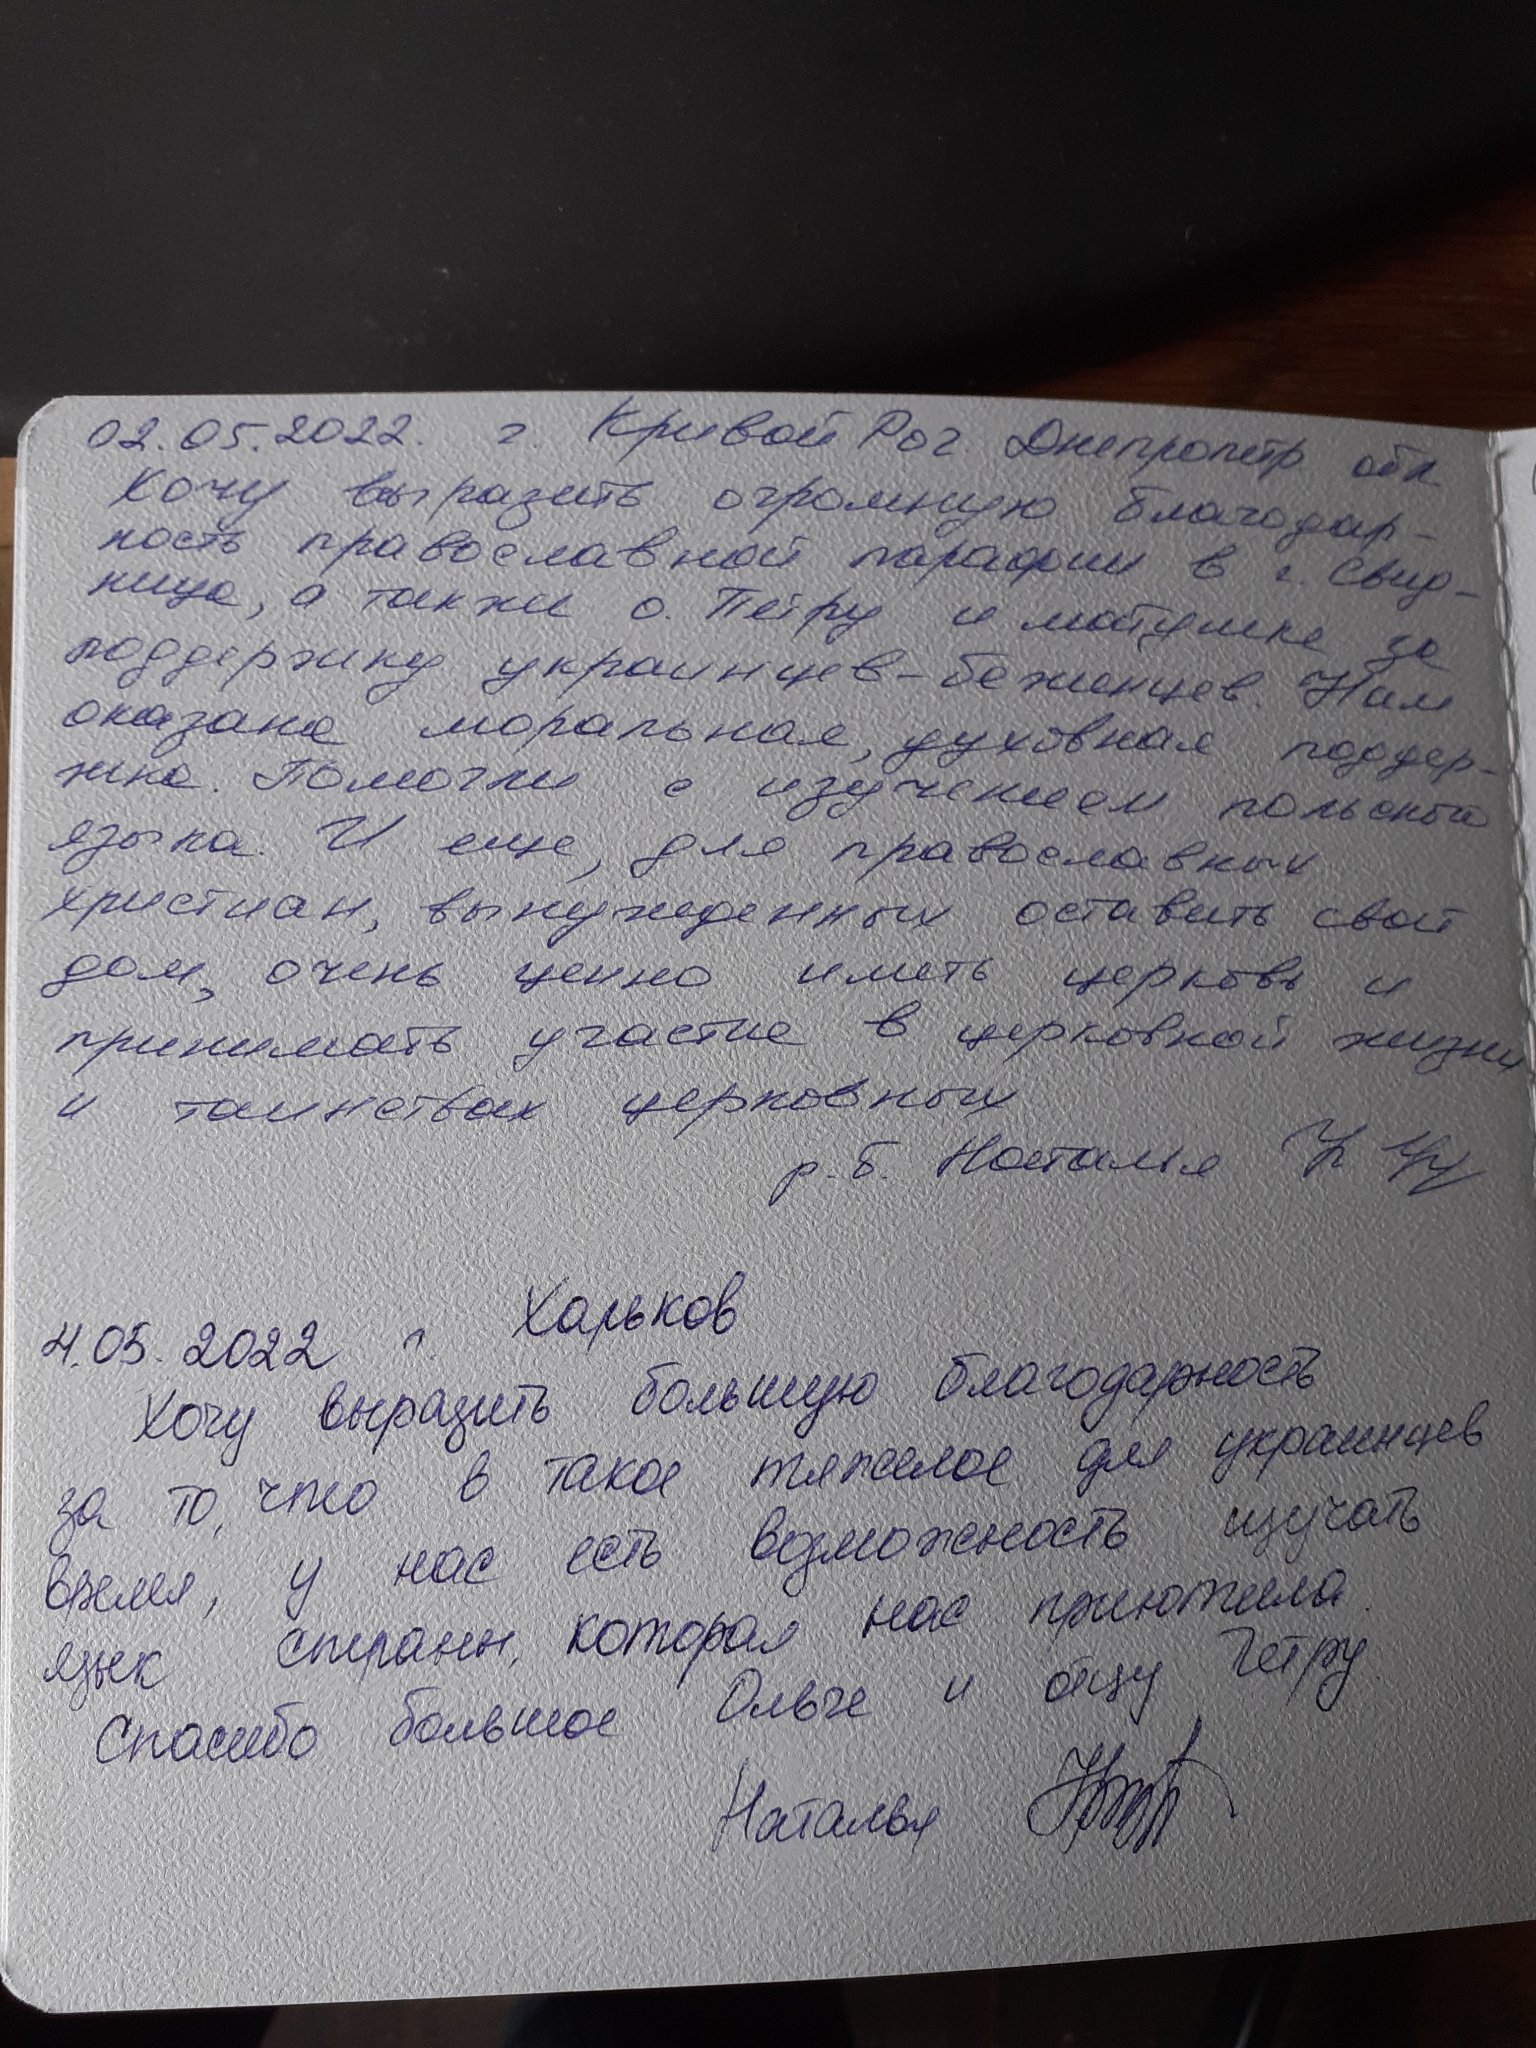 02.05.2022. г. Кривой Рог. Днепропетр обл
Хочу выразить огромную благодар-
ность православной парафии в г. Свид-
ница, а также о. Петру и матушке за
поддержку украинцев-беженцев. Нам
оказана моральная, духовная поддер-
жка. Помогли с изучением польского
языка. И еще, для православных
христиан, вынужденных оставить свой
дом, очень ценно иметь церковь и
принимать участие в церковной жизни
и таинствах церковных
р.б. Наталья
4.05.2022 г. Харьков
Хочу выразить большую благодарность
за то, что в такое тяжелое для украинцев
время, у нас есть возможность изучать
язык страны, которая нас приютила.
Спасибо большое Ольге и отцу Петру.
Наталья